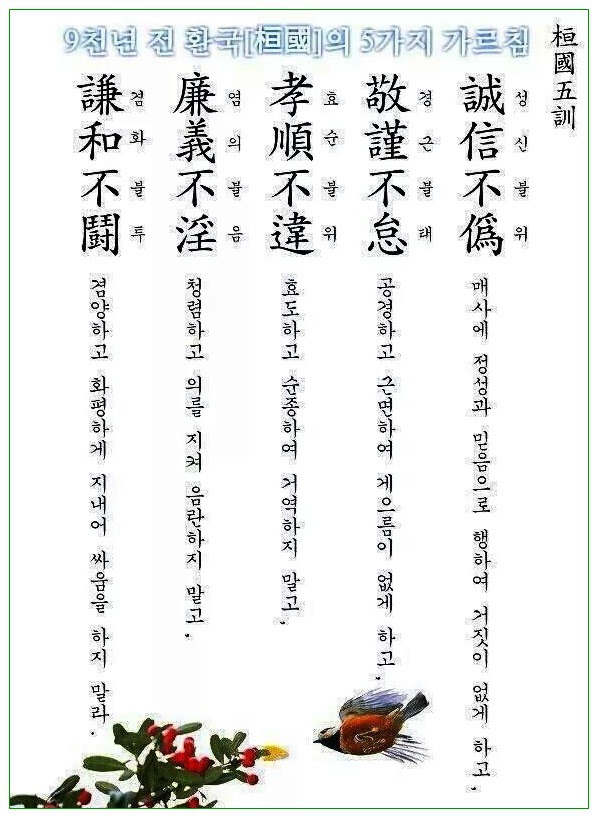 9천년 전 환국[桓國]의 5가지 가르침
桓國五訓
誠信不僞
성신불위
매사에 정성과 믿음으로 행하여 거짓이 없게 하고,
敬謹不怠
경근불태
공경하고 근면하여 게으름이 없게 하고,
孝順不違
효순불위
효도하고 순종하여 거역하지 말고,
廉義不淫
염의불음
청렴하고 의를 지켜 음란하지 말고,
謙和不鬪
겸화불투
겸양하고 화평하게 지내어 싸움을 하지 말라.